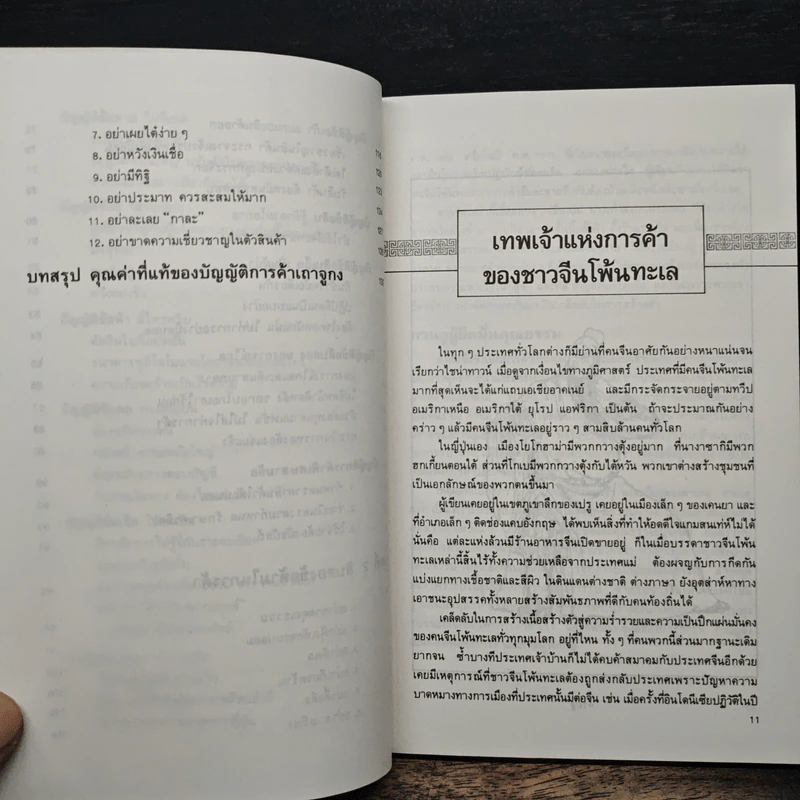 7. อย่าเผยไต๋ง่าย ๆ
8. อย่าหวังเงินเชื่อ
9. อย่ามีทิฐิ
10. อย่าประมาท ควรสะสมให้มาก
11. อย่าละเลย "กาละ"
12. อย่าขาดความเชี่ยวชาญในตัวสินค้า
บทสรุป คุณค่าที่แท้ของบัญญัติการค้าเถาจูกง
เทพเจ้าแห่งการค้า
ของชาวจีนโพ้นทะเล
ในทุก ๆ ประเทศทั่วโลกต่างก็มีย่านที่คนจีนอาศัยกันอย่างหนาแน่นจน
เรียกว่าไชน่าทาวน์ เมื่อดูจากเงื่อนไขทางภูมิศาสตร์ ประเทศที่มีคนจีนโพ้นทะเล
มากที่สุดเห็นจะได้แก่แถบเอเชียอาคเนย์ และมีกระจัดกระจายอยู่ตามทวีป
อเมริกาเหนือ อเมริกาใต้ ยุโรป แอฟริกา เป็นต้น ถ้าจะประมาณกันอย่าง
คร่าว ๆ แล้วมีคนจีนโพ้นทะเลอยู่ราว ๆ สามสิบล้านคนทั่วโลก
ในญี่ปุ่นเอง เมืองโยโกฮาม่ามีพวกกวางตุ้งอยู่มาก ที่นางาซากิมีพวก
ฮกเกี้ยนตอนใต้ ส่วนที่โกเบมีพวกกวางตุ้งกับไต้หวัน พวกเขาต่างสร้างชุมชนที่
เป็นเอกลักษณ์ของพวกตนขึ้นมา
ผู้เขียนเคยอยู่ในเขตภูเขาลึกของเปรู เคยอยู่ในเมืองเล็ก ๆ ของเคนยา และ
ที่อำเภอเล็ก ๆ ติดช่องแคบอังกฤษ ได้พบเห็นสิ่งที่ทำให้อดดีใจแกมสนเท่ห์ไม่ได้
นั่นคือ แต่ละแห่งล้วนมีร้านอาหารจีนเปิดขายอยู่ ก็ในเมื่อบรรดาชาวจีนโพ้น
ทะเลเหล่านี้สิ้นไร้ทั้งความช่วยเหลือจากประเทศแม่ ต้องผจญกับการกีดกัน
แบ่งแยกทางเชื้อชาติและสีผิว ในดินแดนต่างชาติ ต่างภาษา ยังอุตส่าห์หาทาง
เอาชนะอุปสรรคทั้งหลายสร้างสัมพันธภาพที่ดีกับคนท้องถิ่นได้
เคล็ดลับในการสร้างเนื้อสร้างตัวสู่ความร่ำรวยและความเป็นปึกแผ่นมั่นคง
ของคนจีนโพ้นทะเลทั่วทุกมุมโลก อยู่ที่ไหน ทั้ง ๆ ที่คนพวกนี้ส่วนมากฐานะเดิม
ยากจน ซ้ำบางทีประเทศเจ้าบ้านก็ไม่ได้คบค้าสมาคมกับประเทศจีนอีกด้วย
เคยมีเหตุการณ์ที่ชาวจีนโพ้นทะเลต้องถูกส่งกลับประเทศเพราะปัญหาความ
บาดหมางทางการเมืองที่ประเทศนั้นมีต่อจีน เช่น เมื่อครั้งที่อินโดนีเซียปฏิวัติในปี
11